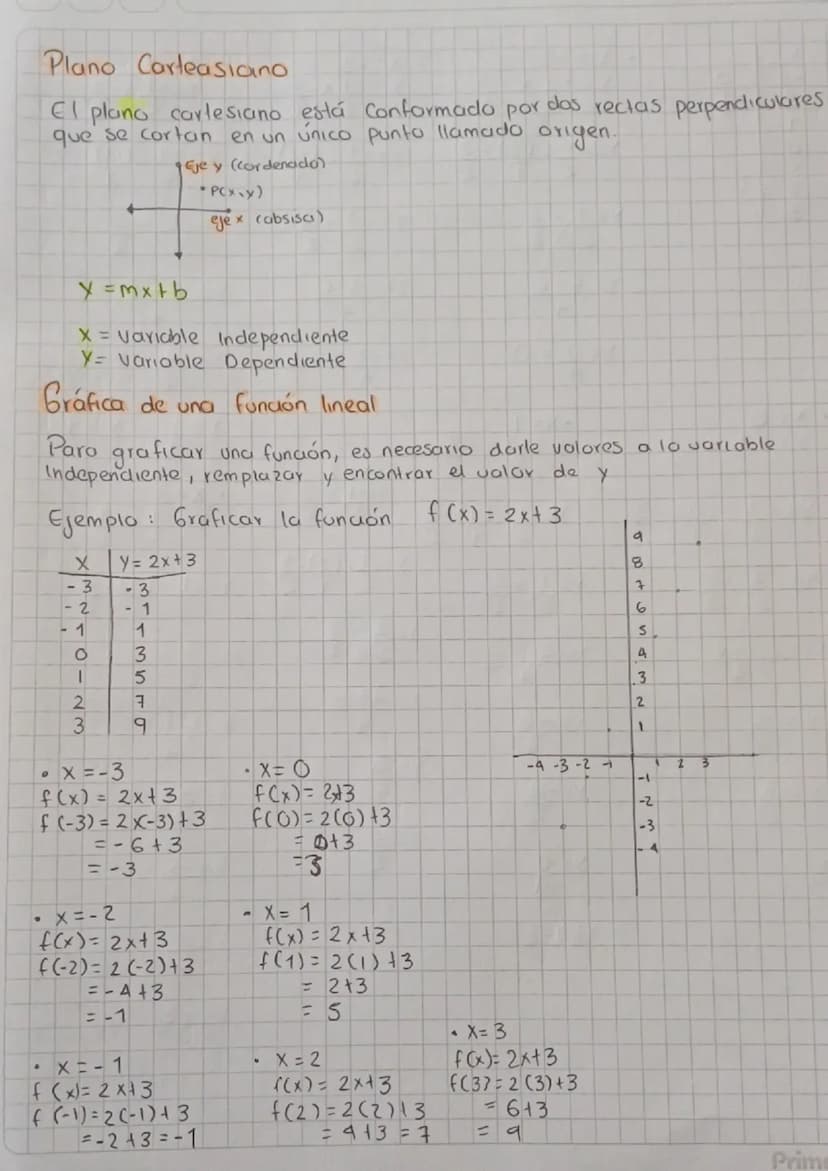 Plano Carteasiano
El plano cartesiano está conformado por dos rectas perpendiculares
que se cortan en un único punto llamado origen.
Eje y (cordenada)
P(x,y)
eje x (absisa)
y = mx+b
x = variable Independiente
y = variable Dependiente
Gráfica de una función lineal
Para graficar una función, es necesario darle valores a la variable
Independiente, remplazar y encontrar el valor de y
Ejemplo: Graficar la función f(x) = 2x+3
x | y = 2x+3
-3 | -3
-2 | -1
-1 | 1
0 | 3
1 | 5
2 | 7
3 | 9
9
8
7
6
5
4
3
2
1
-4 -3 -2 -1 1 2 3
-1
-2
-3
-4
• x = -3
f(x) = 2x+3
f(-3) = 2x(-3)+3
= -6+3
= -3
• x = 0
f(x) = 2x+3
f(0) = 2(0)+3
= 0+3
= 3
• x = -2
f(x) = 2x+3
f(-2) = 2(-2)+3
= -4+3
= -1
- x = 1
f(x) = 2x+3
f(1) = 2(1)+3
= 2+3
= 5
• x = -1
f(x) = 2x+3
f(-1) = 2(-1)+3
= -2+3 = -1
• x = 2
f(x) = 2x+3
f(2) = 2(2)+3
= 4+3 = 7
• x = 3
f(x) = 2x+3
f(3) = 2(3)+3
= 6+3
= 9
Prim